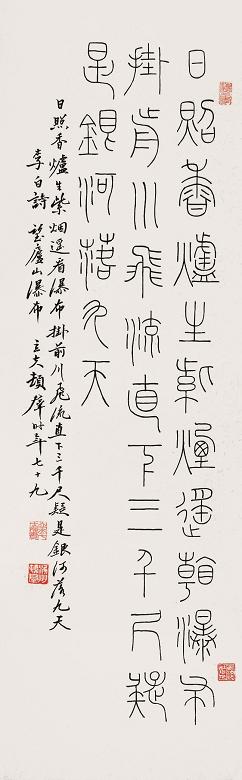 日照香爐生紫煙遙看瀑布
掛前川飛流直下三千尺疑
是銀河落九天
日照香爐生紫烟遥看瀑布掛前川飛流直下三千尺疑是銀河落九天
李白詩 望廬山瀑布 時年七十九